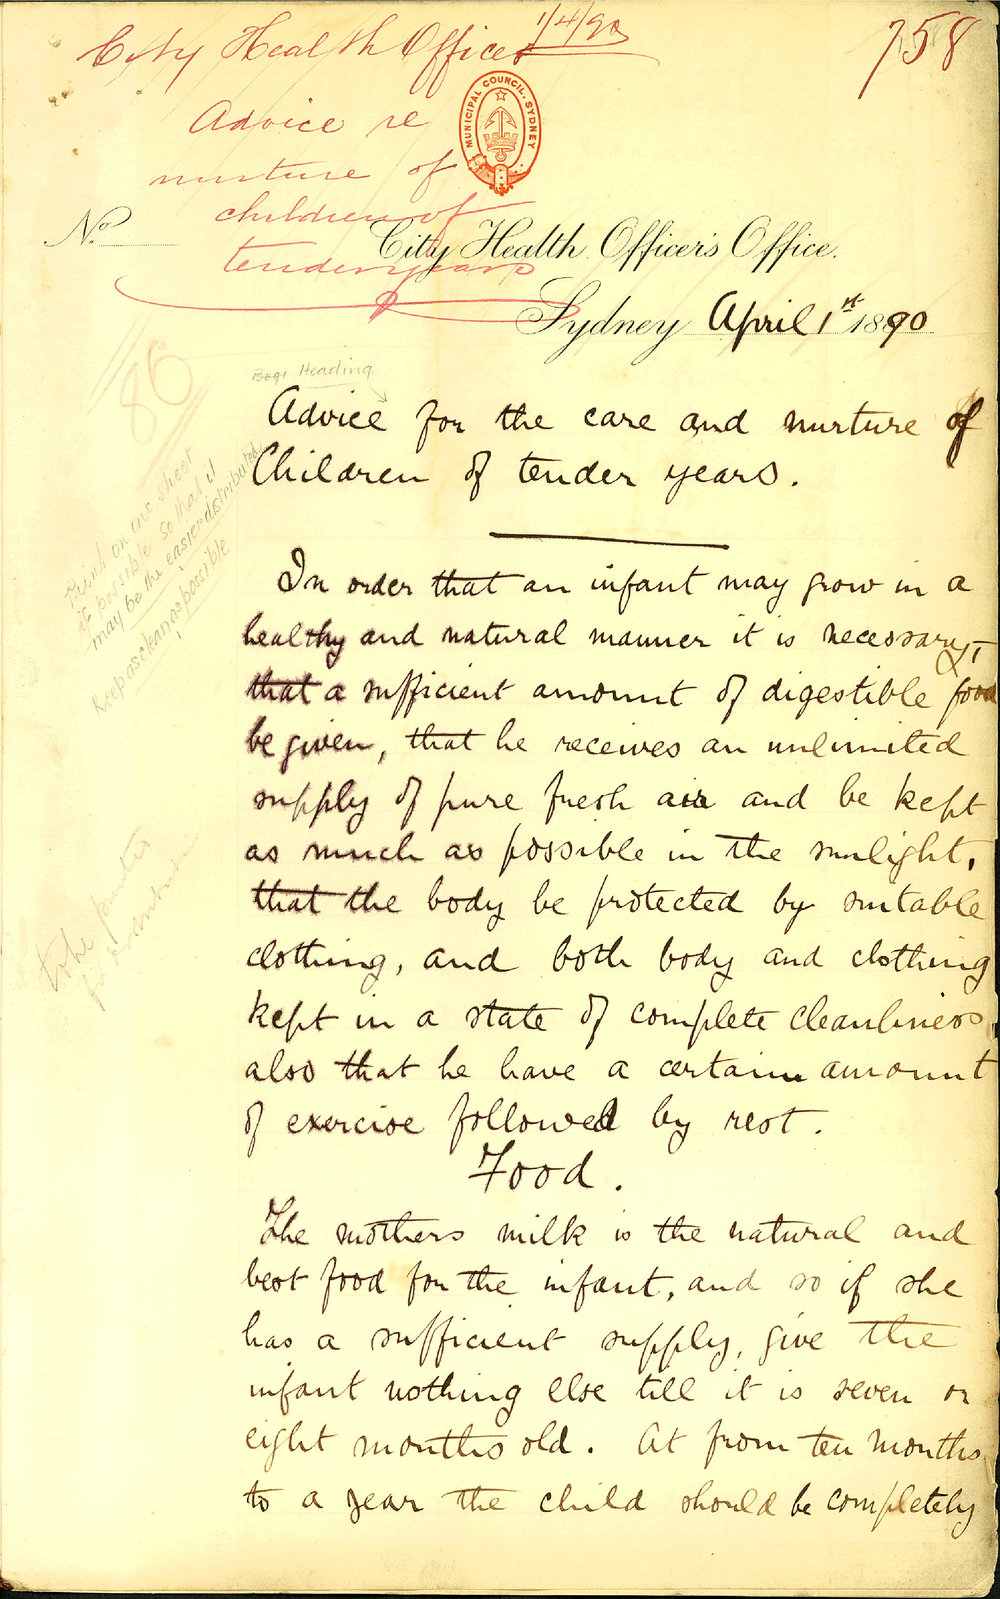 City Health Officer 1/4/90
758
Advice re
nurture of
children of
tender years
MUNICIPAL COUNCIL. SYDNEY
No.
City Health Officer's Office.
Sydney April 1st 1890
86
Heading
Advice for the care and nurture of
Children of tender years.
Print on one sheet
if possible so that it
may be the easier distributed
Keep as clean as possible
In order that an infant may grow in a
healthy and natural manner it is necessary,
that a sufficient amount of digestible food
be given, that he receives an unlimited
supply of pure fresh air and be kept
as much as possible in the sunlight,
that the body be protected by suitable
clothing, and both body and clothing
kept in a state of complete cleanliness
also that he have a certain amount
of exercise followed by rest.
Food.
The mothers milk is the natural and
best food for the infant, and so if she
has a sufficient supply, give the
infant nothing else till it is seven or
eight months old. At from ten months
to a year the child should be completely